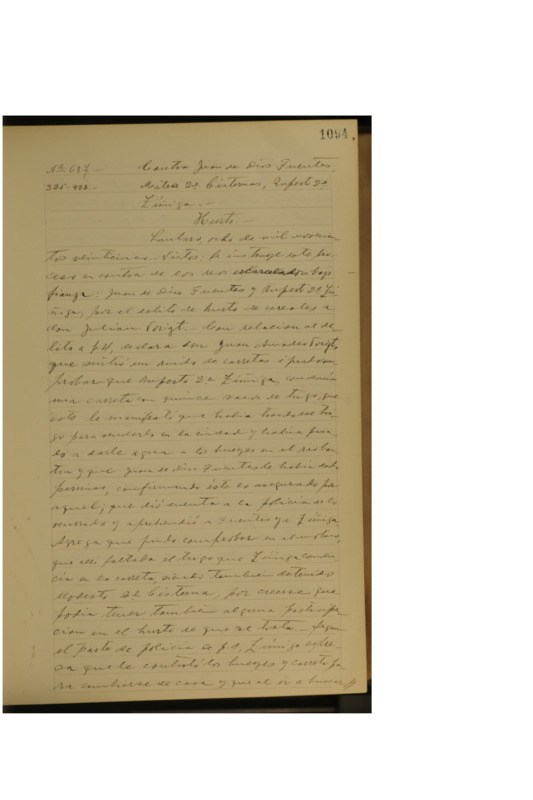 1094,
Nº 617 — Contra Juan de Dios Fuentes,
335-988 — 2º Cisternas, Ruperto 2º
Zúñiga. —
Hurto. —
ocho de mil novecien
tos veinticinco. Vistos: Se instruye este pro
ceso en contra de los reos escarcelados bajo
fianza: Juan de Dios Fuentes y Ruperto 2º Zú
ñiga, por el delito de hurto de cereales a
don Julian Voigt. — Con relacion al de
lito a f. declara don Juan Amadeo Voigt,
que sintió un ruido de carretas i pudo com
probar que Ruperto 2º Zúñiga, conducia
una carreta con quince sacos de trigo, que
este le manifestó que habia traido ese tri
go para venderlo en la ciudad y habia pasa
do a darle agua a los bueyes en el
y que Juan de Dios Fuentes le habia dado
permiso, confirmando éste lo asegurado por
aquel; que dió cuenta a la policia de lo
ocurrido y aprehendió a Fuentes y a Zúñiga.
Agrega que pudo comprobar en el molino,
que allí faltaba el trigo que Zúñiga condu
cia en la carreta, siendo tambien detenido
Modesto 2º Cisterna, por creerse que
podia tener tambien alguna participa
cion en el hurto de que se trata. — Segun
el parte de policia de f. Zúñiga espre
sa que le contrató los bueyes y carreta pa
ra cambiarse de casa y que al ir a buscar